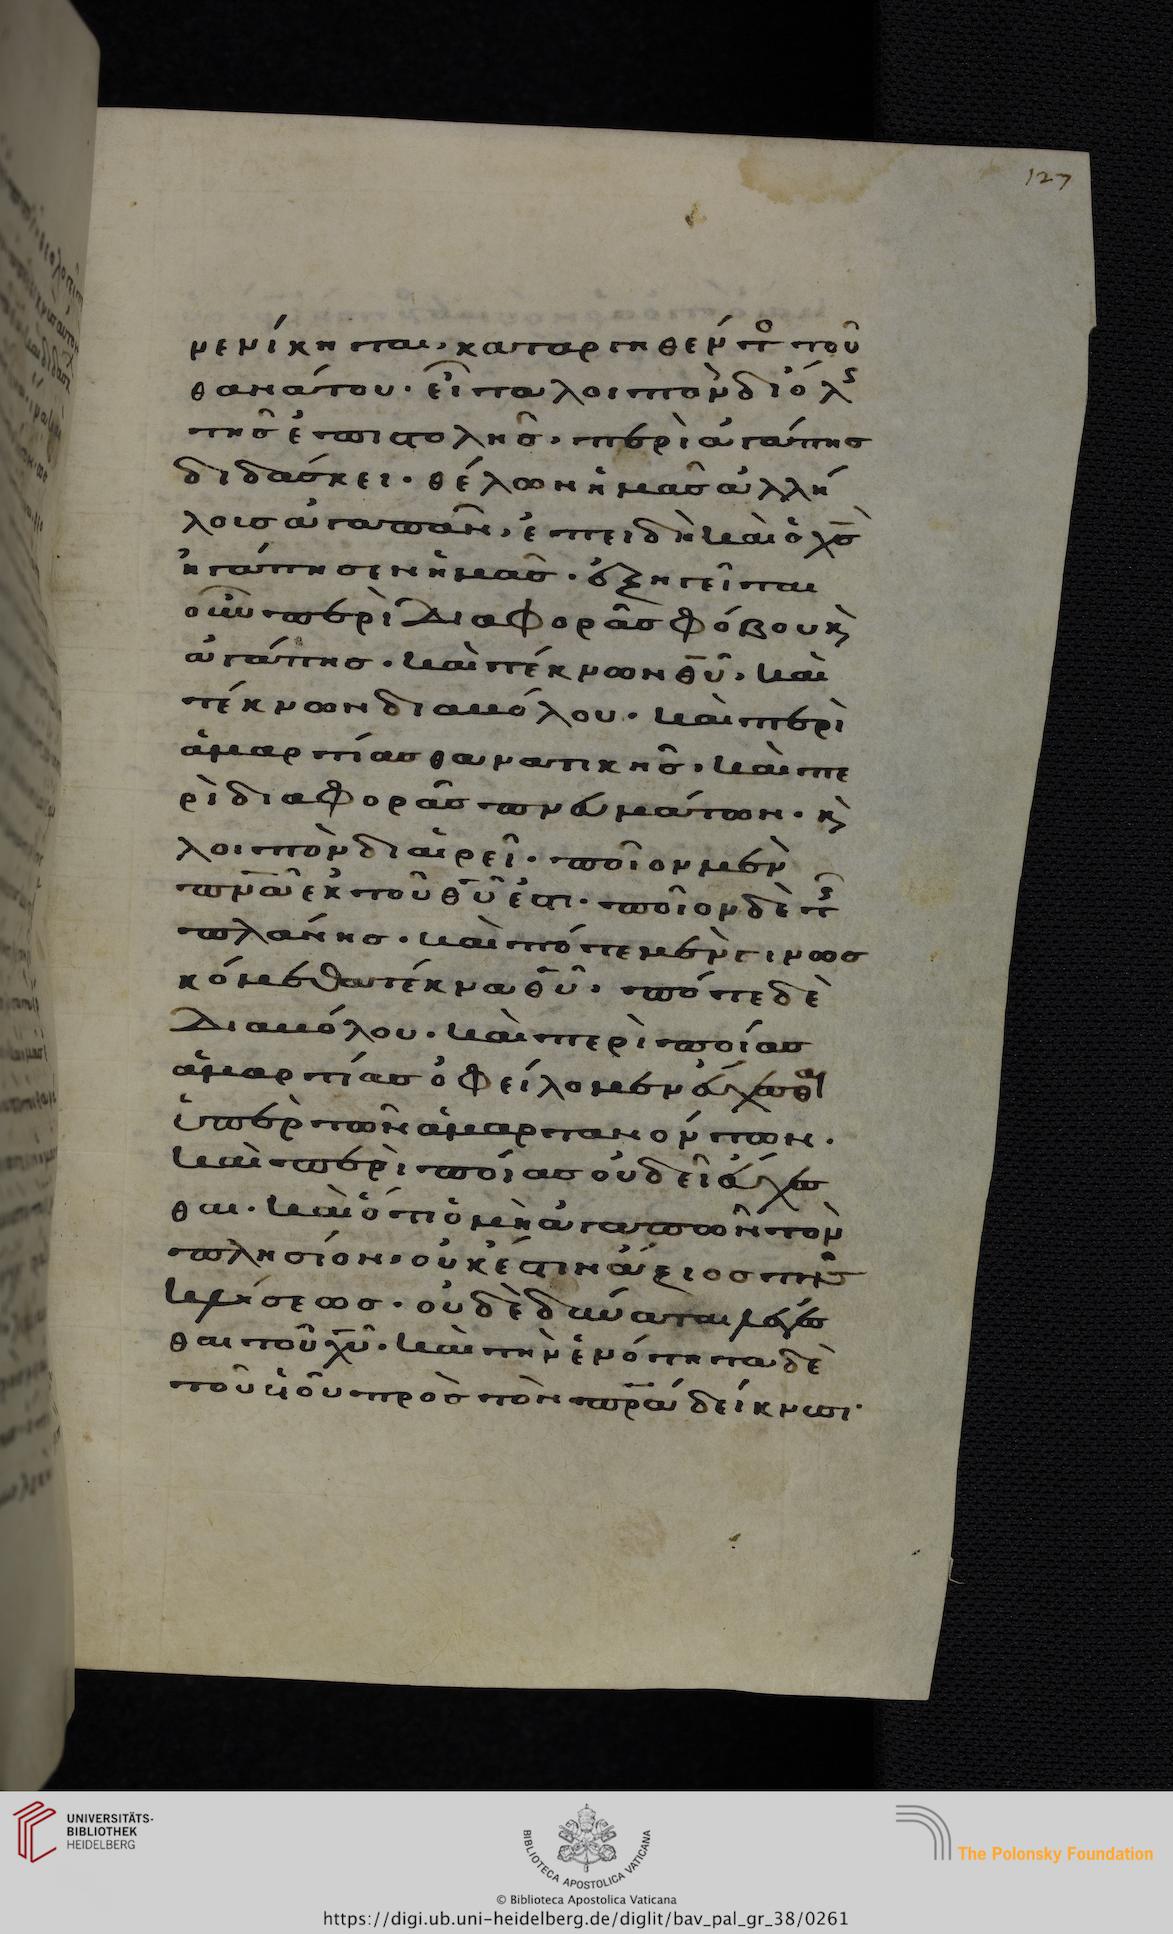 127
νενίκηται, καταργηθέντ(ος) τοῦ
θανάτου. εἶτα λοιπὸν δι' ὅλ(ης)
τῆς ἐπιστολῆς, περὶ ἀγάπης
διδάσκει. θέλων ἡμᾶς ἀλλή
λοις ἀγαπᾶν, ἐπειδὴ καὶ ὁ χ̅ς̅
ἠγάπησεν ἡμᾶς. διαλέγεται
οὖν περὶ διαφορᾶς φόβου κ(αὶ)
ἀγάπης. καὶ τέκνων θ̅υ̅. καὶ
τέκνων διαβόλου. καὶ περὶ
ἁμαρτίας θανατικῆς. καὶ πε
ρὶ διαφορᾶς πνευμάτων. κ(αὶ)
λοιπὸν διαιρεῖ. ποῖον μὲν
π̅ν̅α̅ ἐκ τοῦ θ̅υ̅ ἐστι. ποῖον δὲ τ(ῆς)
πλάνης. καὶ πότε μὲν γινωσ
κόμεθα τέκνα θ̅υ̅. πότε δὲ
διαβόλου. καὶ περὶ ποίας
ἁμαρτίας ὀφείλομεν εὔχεσθαι
ὑπὲρ τῶν ἁμαρτανόντων.
καὶ περὶ ποίας οὐ δεῖ εὔχεσ
θαι. καὶ ὅτι ὁ μὴ ἀγαπῶν τὸν
πλησίον, οὐκ ἔστιν ἄξιος τῆς
κλήσεως. οὐδὲ δύναται λέγεσ
θαι τοῦ χ̅υ̅. καὶ τὴν ἑνότητα δὲ
τοῦ υἱοῦ πρὸς τὸν π̅ρ̅α̅ δείκνυσι.
UNIVERSITÄTS-
BIBLIOTHEK
HEIDELBERG
BIBLIOTECA APOSTOLICA VATICANA
The Polonsky Foundation
© Biblioteca Apostolica Vaticana
https://digi.ub.uni-heidelberg.de/diglit/bav_pal_gr_38/0261